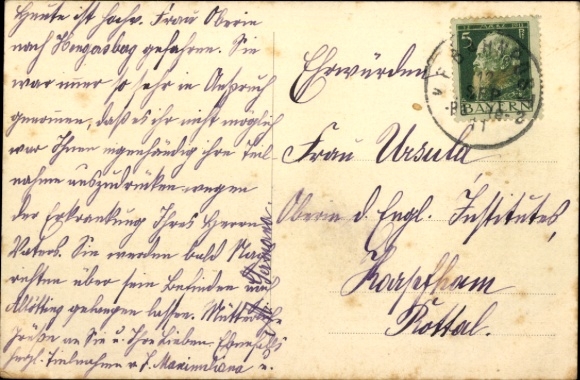 Heute ist hochv. Frau Oberin
nach Hengersbag gefahren. Sie
war immer so sehr in Anspruch
genommen, daß es ihr nicht möglich
war Ihnen eigenhändig ihre Teil-
nahme auszudrücken wegen
der Erkrankung Ihres Herrn
Vaters. Sie werden bald Nach-
richten über sein Befinden
Altötting gelangen lassen. Mütterliche
Grüße an Sie u. Ihre Lieben. Ebenfalls
herzl. Teilnahme v. J. Maximiliana u.
Germana.
5
BAYERN
SEP
11
Ehrwürden
Frau Ursula,
Oberin d. Engl. Institutes,
Karpfham
Rottal.